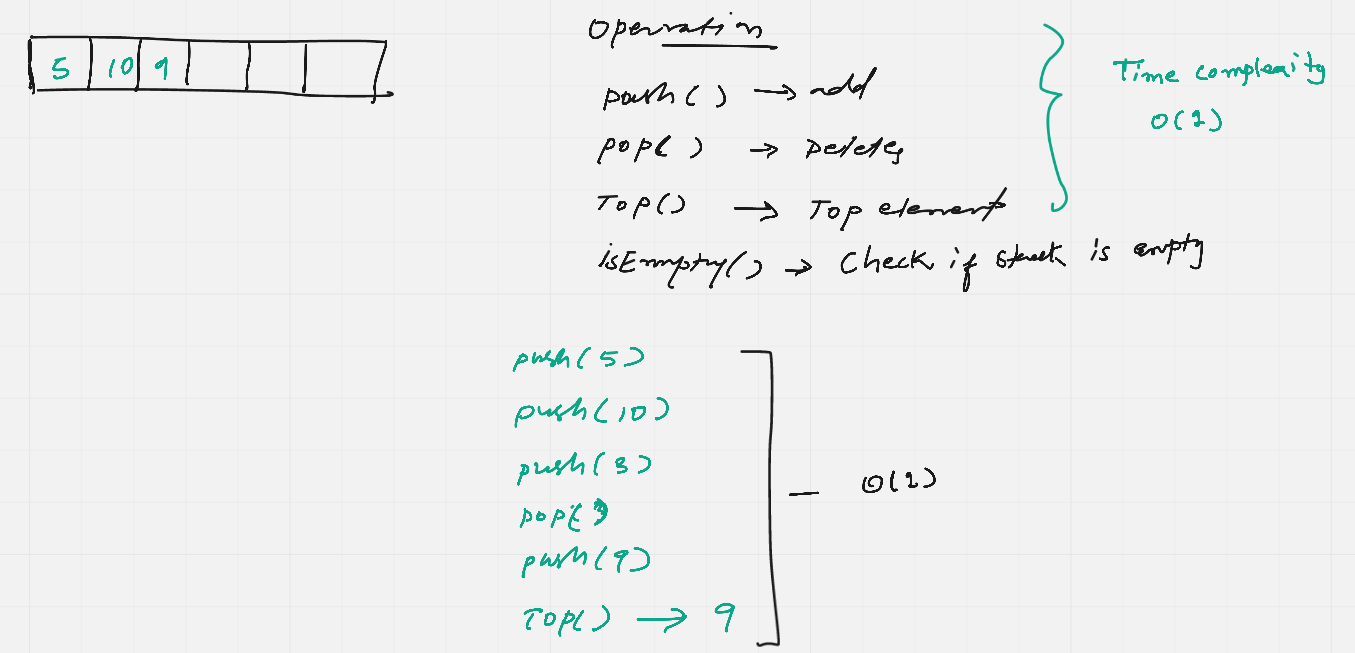 5 10 9
Operation
push() → add
pop() → Deletes
Top() → Top element
isEmpty() → Check if stack is empty
Time complexity
O(1)
push(5)
push(10)
push(3)
pop()
push(9)
Top() → 9
— O(1)